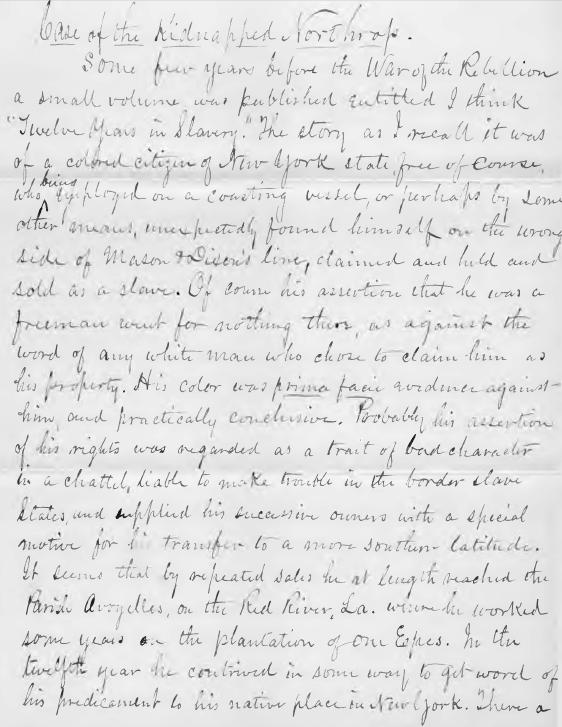 Case of the Kidnapped Northrop.
Some few years before the War of the Rebellion
a small volume was published entitled I think
"Twelve Years in Slavery." The story as I recall it was
of a colored citizen of New York state, free of course,
who being employed on a coasting vessel, or perhaps by some
other means, unexpectedly found himself on the wrong
side of Mason & Dixon's line, claimed and held and
sold as a slave. Of course his assertion that he was a
freeman went for nothing there, as against the
word of any white man who chose to claim him as
his property. His color was prima facie evidence against
him, and practically conclusive. Probably his assertion
of his rights was regarded as a trait of bad character
in a chattel, liable to make trouble in the border slave
States, and supplied his successive owners with a special
motive for his transfer to a more southern latitude.
It seems that by repeated sales he at length reached the
Parish Avoyelles, on the Red River, La. where he worked
some years on the plantation of one Epes. In the
twelfth year he contrived in some way to get word of
his predicament to his native place in New York. There a